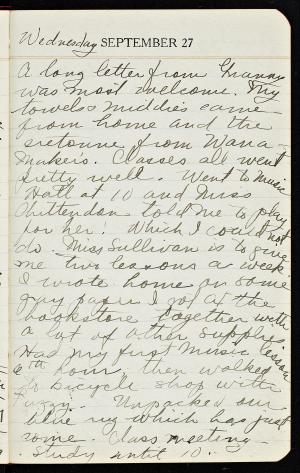 Wednesday SEPTEMBER 27
A long letter from Granny
was most welcome. My
towels & middies came
from home and the
cretonne from Wana-
maker's. Classes all went
pretty well. Went to Music
Hall at 10 and Miss
Chittendon told me to play
for her! Which I could not
do. Miss Sullivan is to give
me two lessons a week.
I wrote home on some
gray paper I got at the
bookstore together with
a lot of other supplies.
Had my first music lesson
6th hour, then walked
to bicycle shop with
Unpacked our
blue rug which has just
come. Class meeting.
Study until 10.